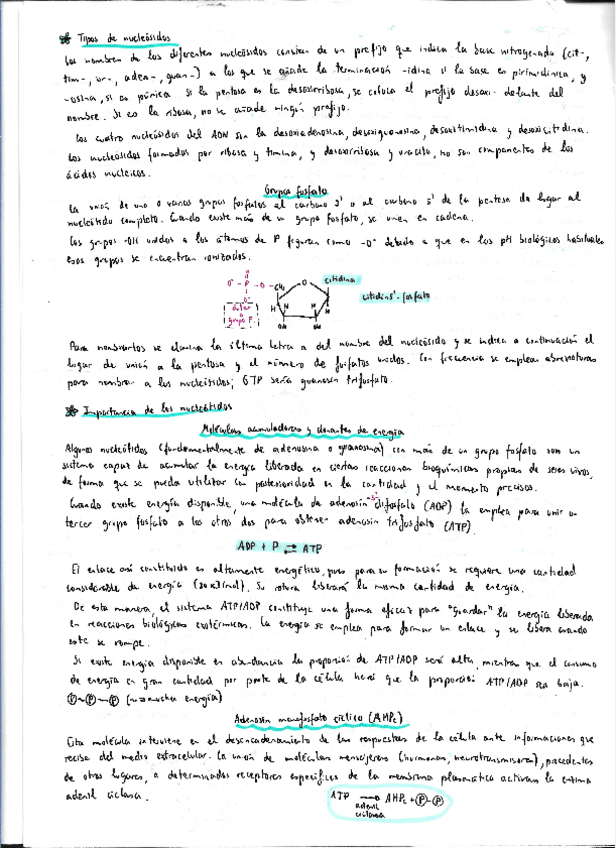 * Tipos de nucleósidos
Los nombres de los diferentes nucleósidos constan de un prefijo que indica la base nitrogenada (cit-,
tim-, ur-, aden-, guan-) a los que se añade la terminación -idina si la base es pirimidínica, y
-osina, si es púrica. Si la pentosa es la desoxirribosa, se coloca el prefijo desoxi- delante del
nombre. Si es la ribosa, no se añade ningún prefijo.
Los cuatro nucleósidos del ADN son la desoxiadenosina, desoxiguanosina, desoxitimidina y desoxicitidina.
Los nucleósidos formados por ribosa y timina, y desoxirribosa y uracilo, no son componentes de los
ácidos nucleicos.
Grupos fosfato
La unión de uno o varios grupos fosfatos al carbono 3' o al carbono 5' de la pentosa da lugar al
nucleótido completo. Cuando existe más de un grupo fosfato, se unen en cadena.
Los grupos -OH unidos a los átomos de P figuran como -O⁻ debido a que en los pH biológicos habituales
esos grupos se encuentran ionizados.
O
O⁻ - P - O - CH₂ O citidina
O⁻
citidín5'-fosfato
H H H H
grupo P.
OH OH
Para nombrarlos se elimina la última letra a del nombre del nucleósido y se indica a continuación el
lugar de unión a la pentosa y el número de fosfatos unidos. Con frecuencia se emplean abreviaturas
para nombrar a los nucleótidos; GTP sería guanosín trifosfato.
* Importancia de los nucleótidos
Moléculas acumuladoras y donantes de energía
Algunos nucleótidos (fundamentalmente de adenosina o guanosina) con más de un grupo fosfato son un
sistema capaz de acumular la energía liberada en ciertas reacciones bioquímicas propias de seres vivos,
de forma que se pueda utilizar con posterioridad en la cantidad y el momento precisos.
Cuando existe energía disponible, una molécula de adenosín-5'-difosfato (ADP) la emplea para unir un
tercer grupo fosfato a los otros dos para obtener adenosín trifosfato (ATP).
ADP + P ⇄ ATP
El enlace así constituido es altamente energético, pues para su formación se requiere una cantidad
considerable de energía (30 KJ/mol). Su rotura liberará la misma cantidad de energía.
De esta manera, el sistema ATP/ADP constituye una forma eficaz para "guardar" la energía liberada
en reacciones biológicas exotérmicas. La energía se emplea para formar un enlace y se libera cuando
este se rompe.
Si existe energía disponible en abundancia la proporción de ATP/ADP será alta, mientras que el consumo
de energía en gran cantidad por parte de la célula hará que la proporción ATP/ADP sea baja.
P~P~P (~=mucha energía)
Adenosín monofosfato cíclico (AMPc)
Esta molécula interviene en el desencadenamiento de las respuestas de la célula ante informaciones que
recibe del medio extracelular. La unión de moléculas mensajeras (hormonas, neurotransmisores), procedentes
de otros lugares, a determinados receptores específicos de la membrana plasmática activan la enzima
adenil ciclasa.
ATP → AMPc + P-P
adenil
ciclasa